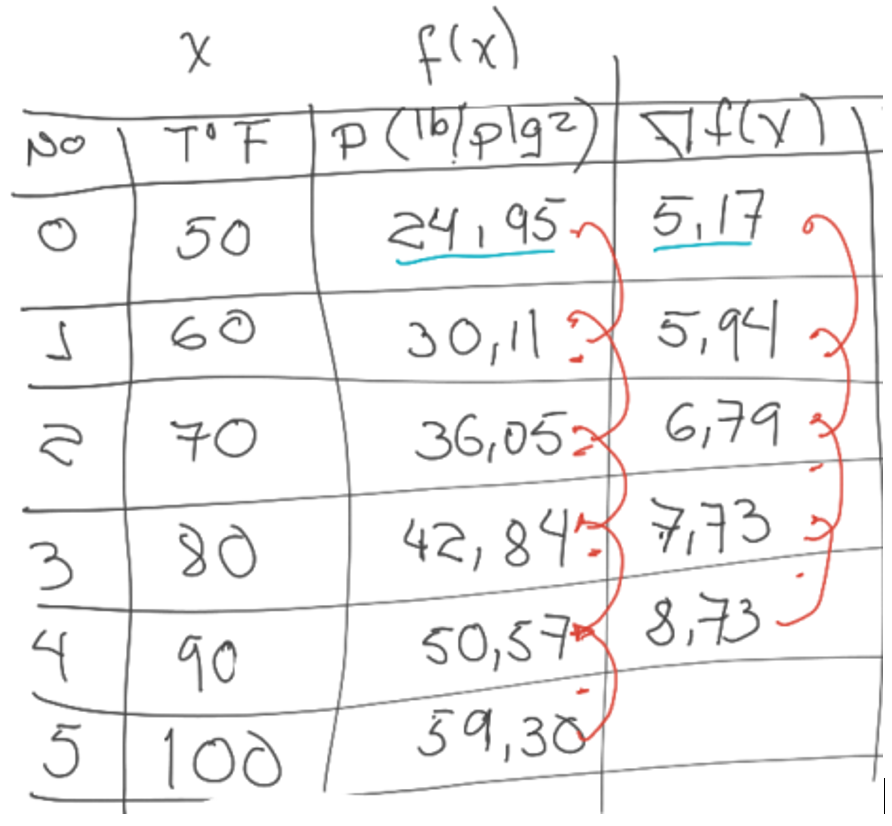 x f(x)
No T°F P (lb/plg²) ∇f(x)
0 50 24,95 5,17
1 60 30,11 5,94
2 70 36,05 6,79
3 80 42,84 7,73
4 90 50,57 8,73
5 100 59,30